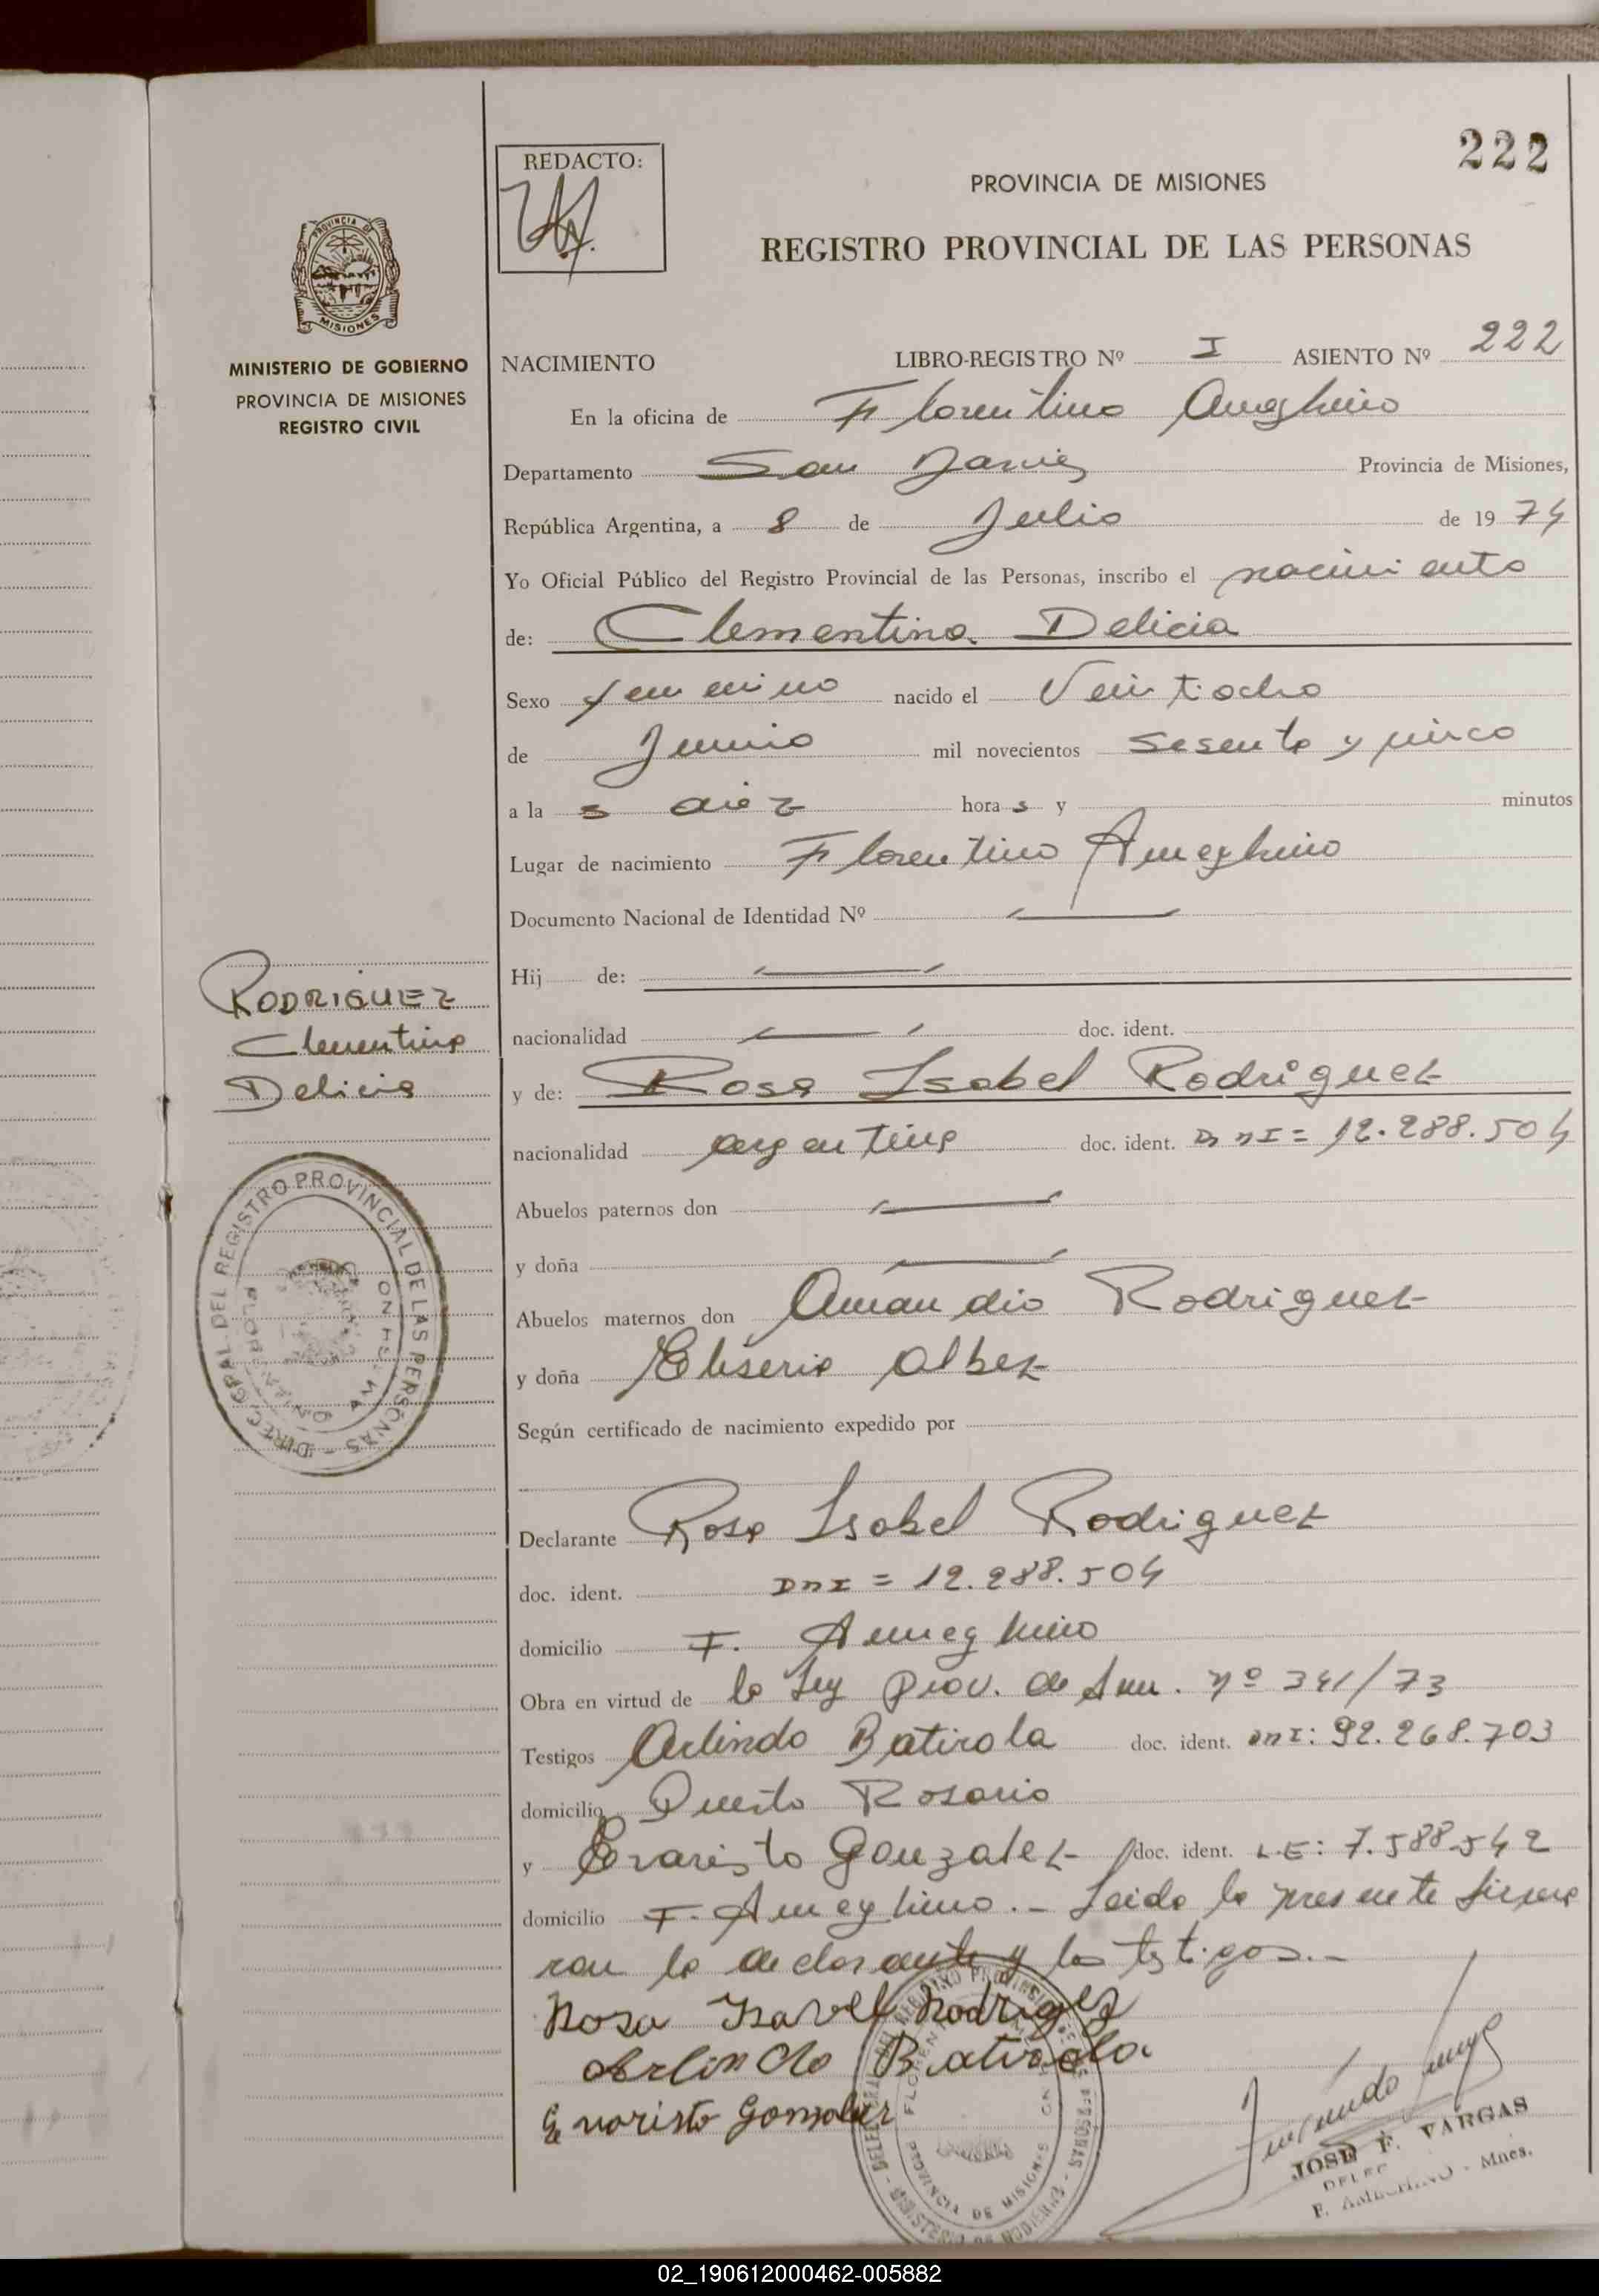 222
REDACTO:
PROVINCIA DE MISIONES
REGISTRO PROVINCIAL DE LAS PERSONAS
PROVINCIA DE
MISIONES
MINISTERIO DE GOBIERNO
PROVINCIA DE MISIONES
REGISTRO CIVIL
NACIMIENTO LIBRO-REGISTRO Nº I ASIENTO Nº 222
En la oficina de Florentino Ameghino
Departamento San Javier Provincia de Misiones,
República Argentina, a 8 de Julio de 1974
Yo Oficial Público del Registro Provincial de las Personas, inscribo el nacimiento
de: Clementina Delicia
Sexo femenino nacido el Veintiocho
de Junio mil novecientos sesenta y cinco
a la s diez hora s y minutos
Lugar de nacimiento Florentino Ameghino
Documento Nacional de Identidad Nº
Hij de:
RODRIGUEZ
Clementina
Delicia
nacionalidad doc. ident.
y de: Rosa Isabel Rodriguez
nacionalidad argentina doc. ident. DNI = 12.288.504
Abuelos paternos don
y doña
DIREC. GRAL. DEL REGISTRO PROVINCIAL DE LAS PERSONAS
Abuelos maternos don Amandio Rodriguez
y doña Eliseria Albez
Según certificado de nacimiento expedido por
Declarante Rosa Isabel Rodriguez
doc. ident. DNI = 12.288.504
domicilio F. Ameghino
Obra en virtud de la Ley Prov. de Amn. nº 341/73
Testigos Arlindo Batirola doc. ident. DNI: 92.268.703
domicilio Puerto Rosario
y Evaristo Gonzalez doc. ident. L.E: 7.588.542
domicilio F. Ameghino.- Leida la presente firma
ron la declarante y los testigos.-
Rosa Isavel Rodrigez
Arlindo Batirola
Evaristo Gonzalez
PROVINCIA DE MISIONES
JOSE F. VARGAS
F. AMEGHINO - Mnes.
02_190612000462-005882